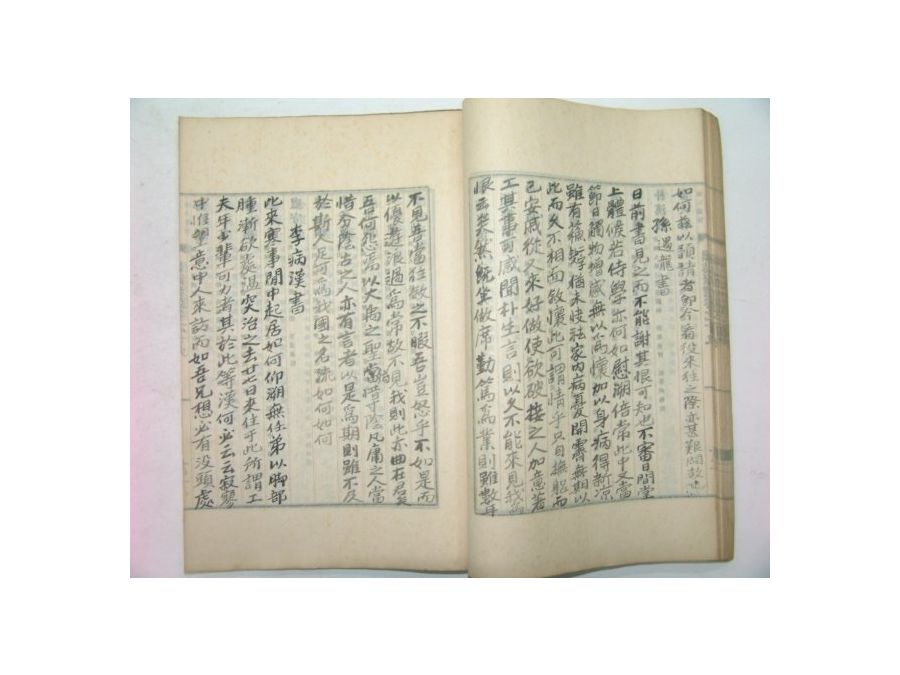 如何茲以預請者卽今看役來往之際亦甚艱悶故
孫過瀧書
日前書見之而不能謝其恨可知也不審日間堂
上體候若侍學亦何如慰溯倍常此中又當
節日觸物增感無以爲懷加以身病得新凉
雖有蘇 猶未快祛家內病憂開霽無期以
此而久不相面敘懷此可謂情乎只自撫躬而
已安戚從人來好做使欲破接之人加意著
工其事可感聞朴生言則以久不能來見我爲
恨云矣然 做席勤篤爲業則雖數年
不見吾當狂敎之不暇吾豈怒乎不如是而
以優遊浪過爲常故不見我則此亦曲在君矣
吾何怨焉以大禹之聖當惜寸陰凡庸之人當
惜分陰古之人亦有言者以是爲期則雖不及
於斯人足可爲我國之名流如何如何
李病漢書
此來寒事閒中起居如何仰溯無任弟以脚部
腫漸欲處溫突治之去廿七日來住于此所謂工
夫年少輩可力者其於此等漢何必云云寂寥
中惟望意中人來訪而如吾兄想必有沒頭處